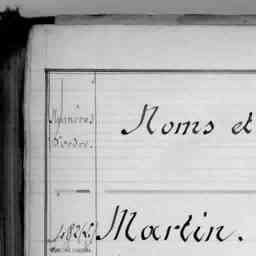 Numéros
d'ordre.
Noms et
Martin.